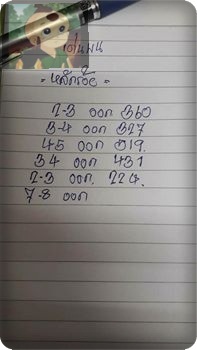 เด่นบน
-หลักร้อย-
2-3 ออก 360
3-4 ออก 327
45 ออก 519.
34 ออก 431
2-3 ออก. 224.
7-8 ออก